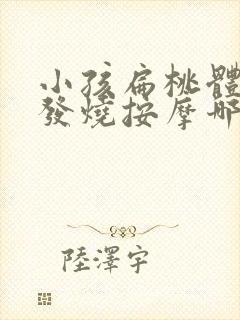 小孩扁桃體
發燒按摩哪
陸澤宇